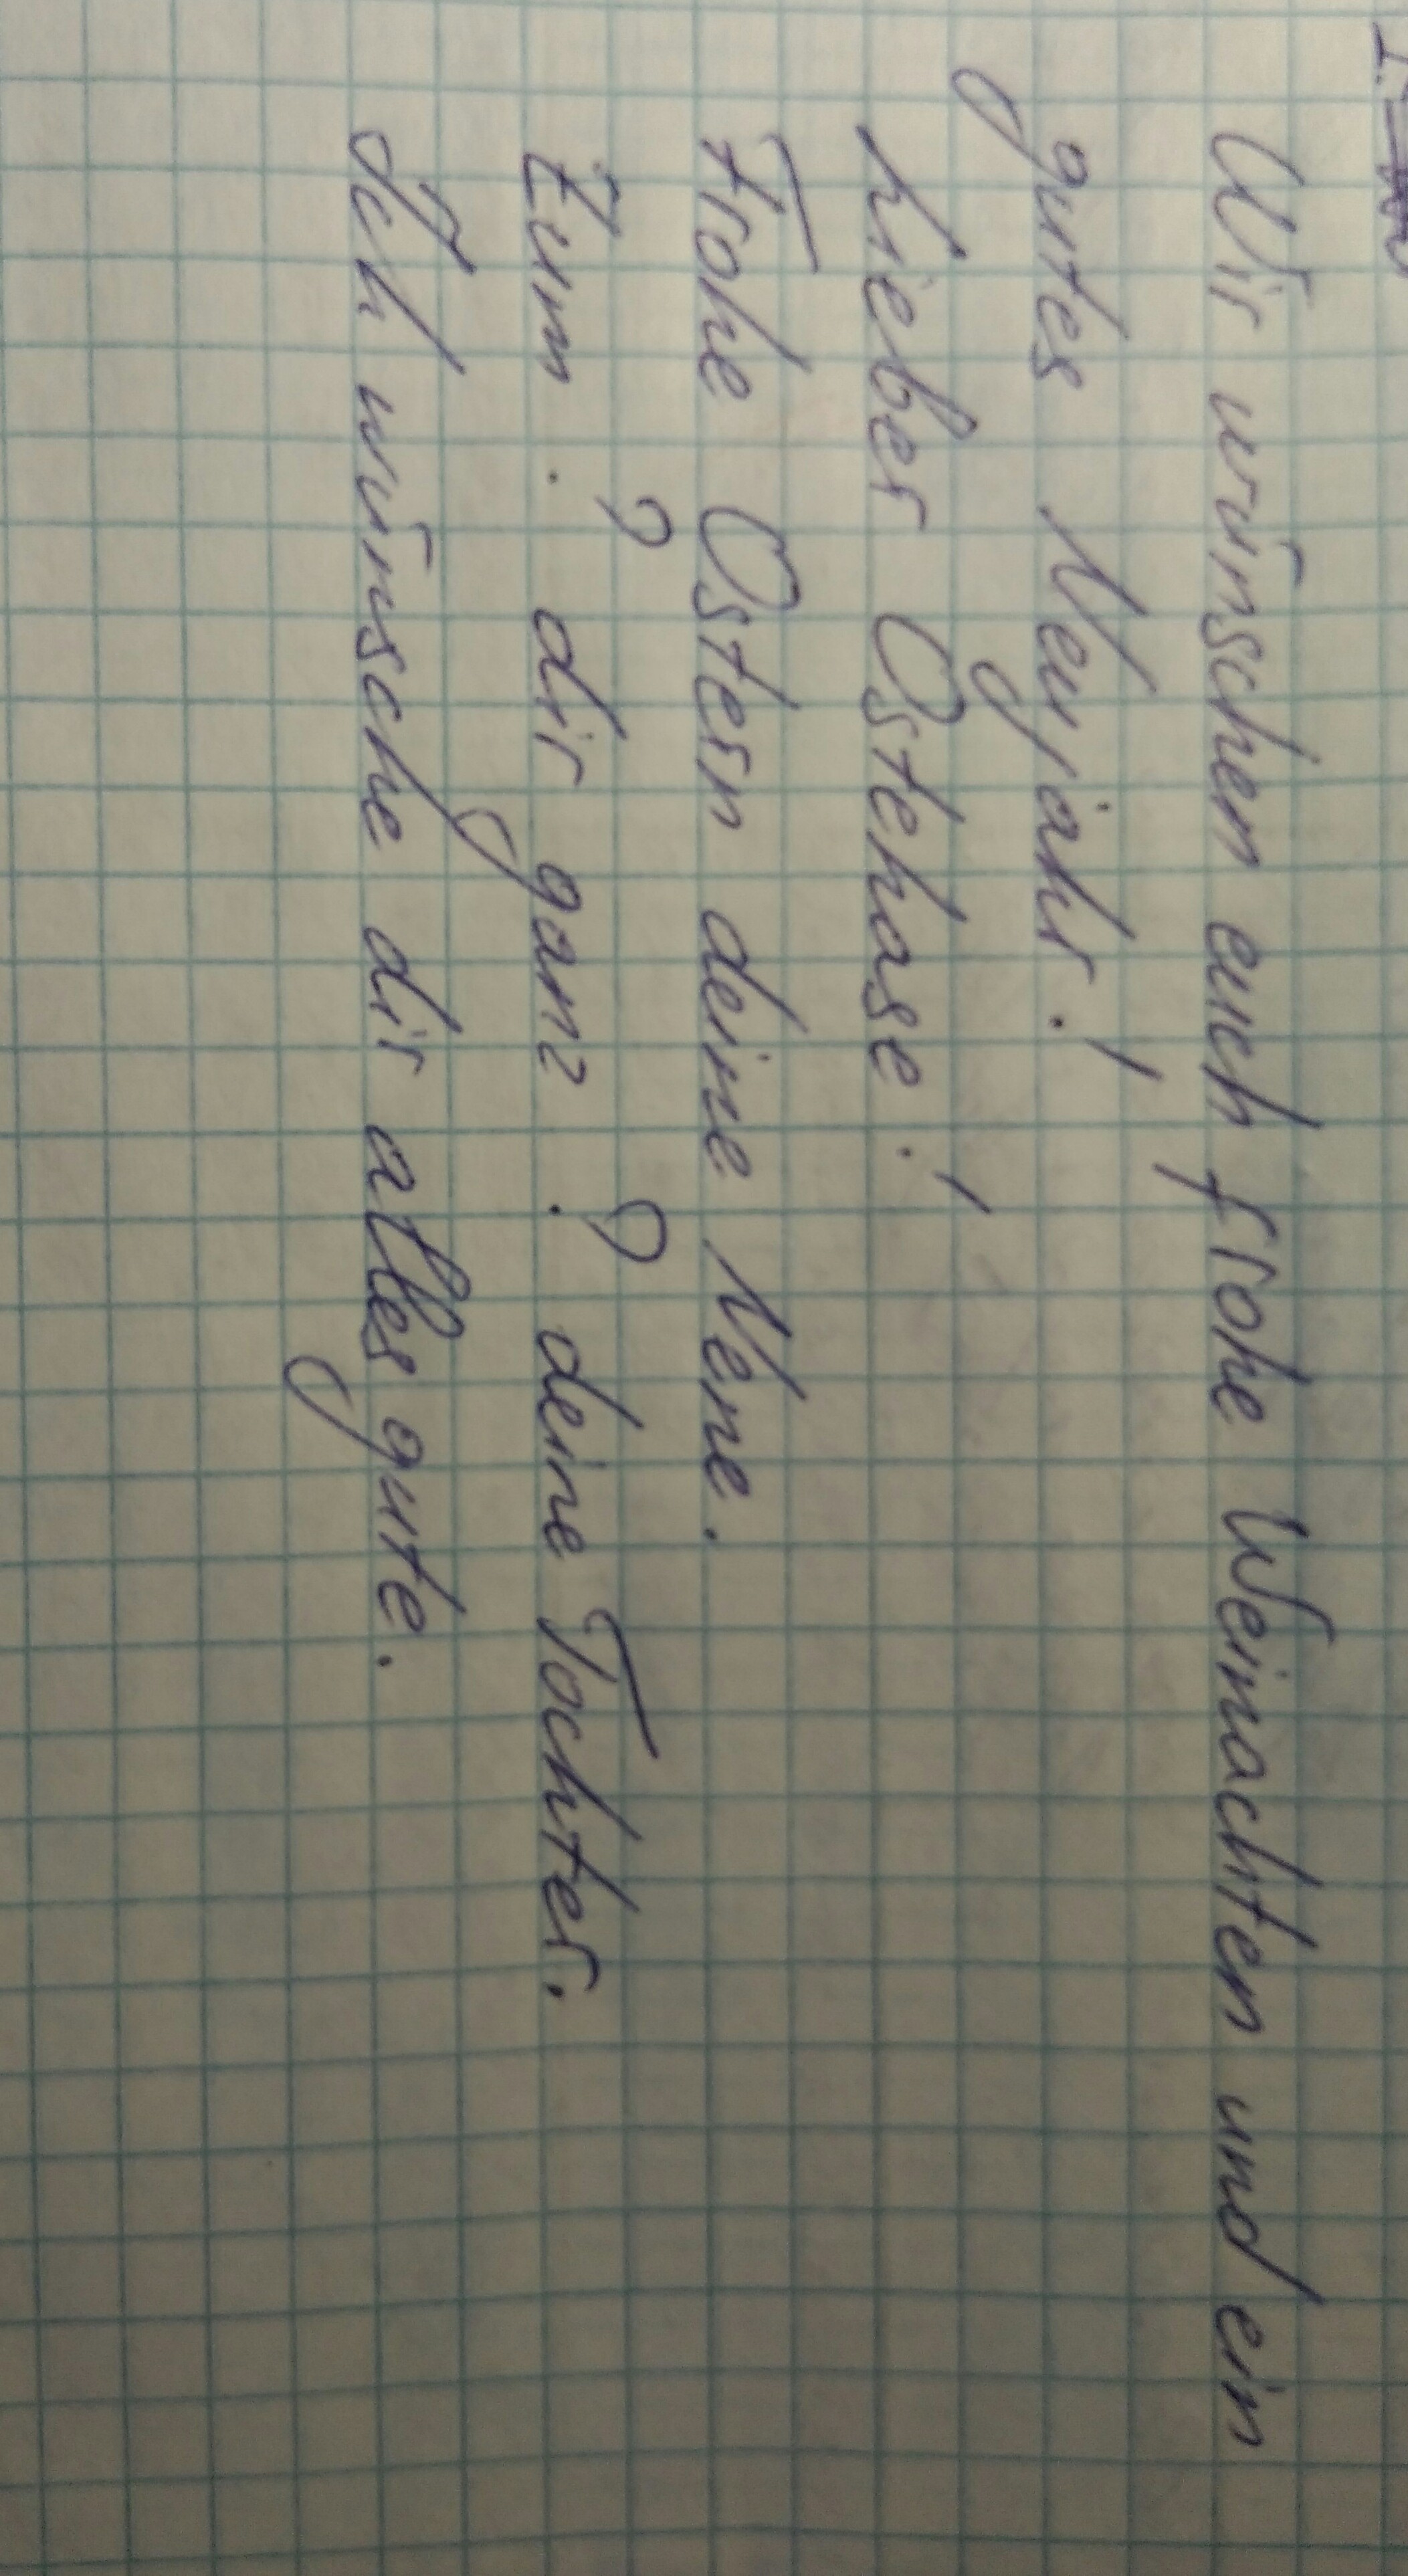 Wir wünschen euch frohe Weinachten und ein
gutes Neujahr!
Lieber Ostehase!
Frohe Ostern deine Nene.
Zum ? dir ganz ? deine Tochter.
Ich wünsche dir alles gute.